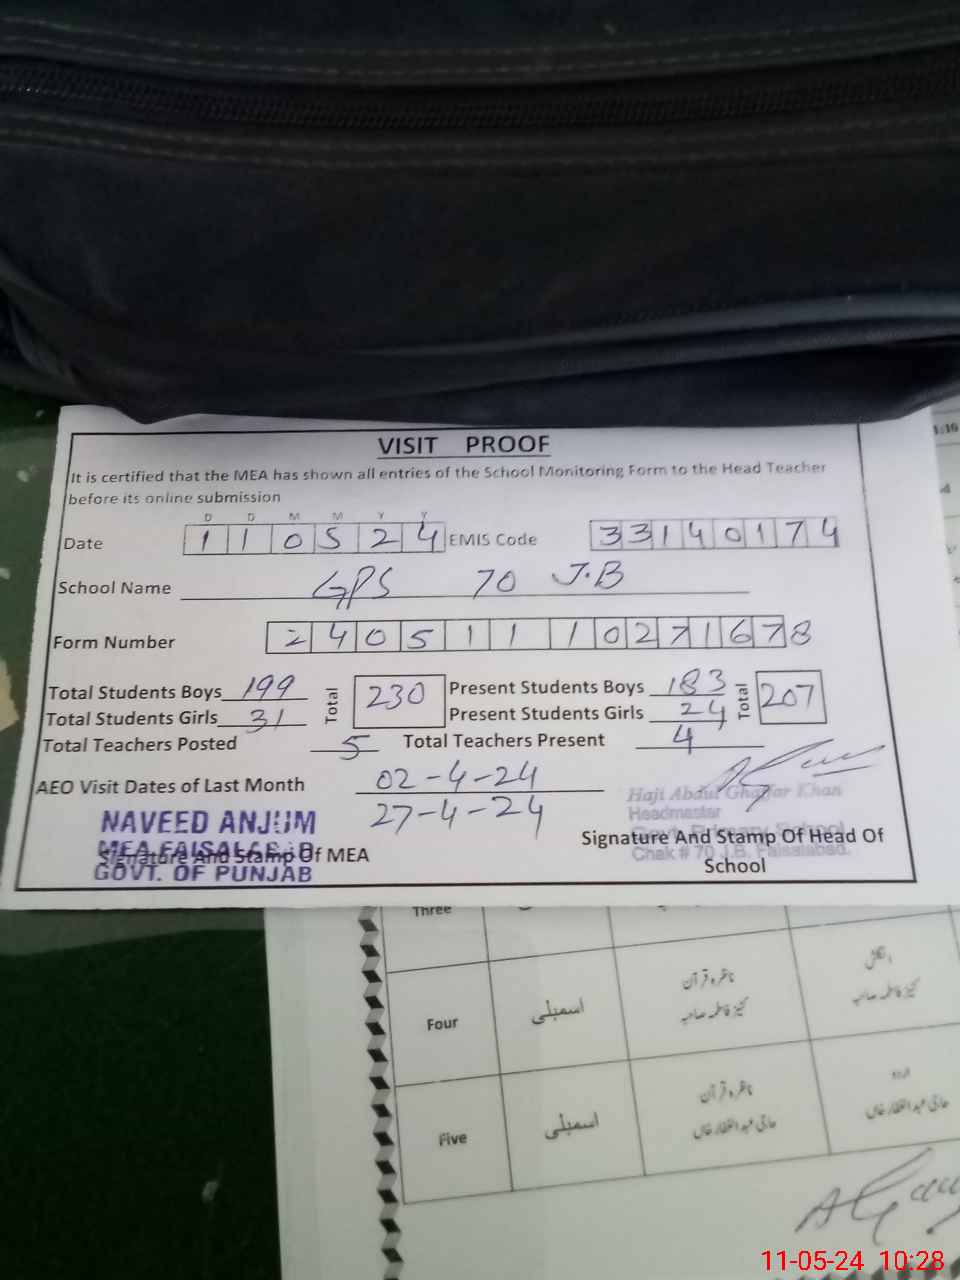 VISIT PROOF
It is certified that the MEA has shown all entries of the School Monitoring Form to the Head Teacher
before its online submission
D D M M Y Y
Date 1 1 0 5 2 4 EMIS Code 3 3 1 4 0 1 7 4
School Name GPS 70 J.B
Form Number 2 4 0 5 1 1 1 0 2 7 1 6 7 8
Total Students Boys 199 Total 230 Present Students Boys 183 Total 207
Total Students Girls 31 Present Students Girls 24
Total Teachers Posted 5 Total Teachers Present 4
AEO Visit Dates of Last Month 02-4-24
27-4-24
NAVEED ANJUM
MEA FAISALABAD
GOVT. OF PUNJAB
Signature And Stamp Of MEA
Haji Abdul Ghaffar Khan
Headmaster
Govt. Primary School
Chak # 70 J.B. Faisalabad.
Signature And Stamp Of Head Of
School
Three
Four اسمبلی ناظرہ قرآن انگلش
کنیز فاطمہ صاحبہ کنیز فاطمہ صاحبہ
Five اسمبلی ناظرہ قرآن اردو
حاجی عبدالغفار خاں حاجی عبدالغفار خاں
11-05-24 10:28